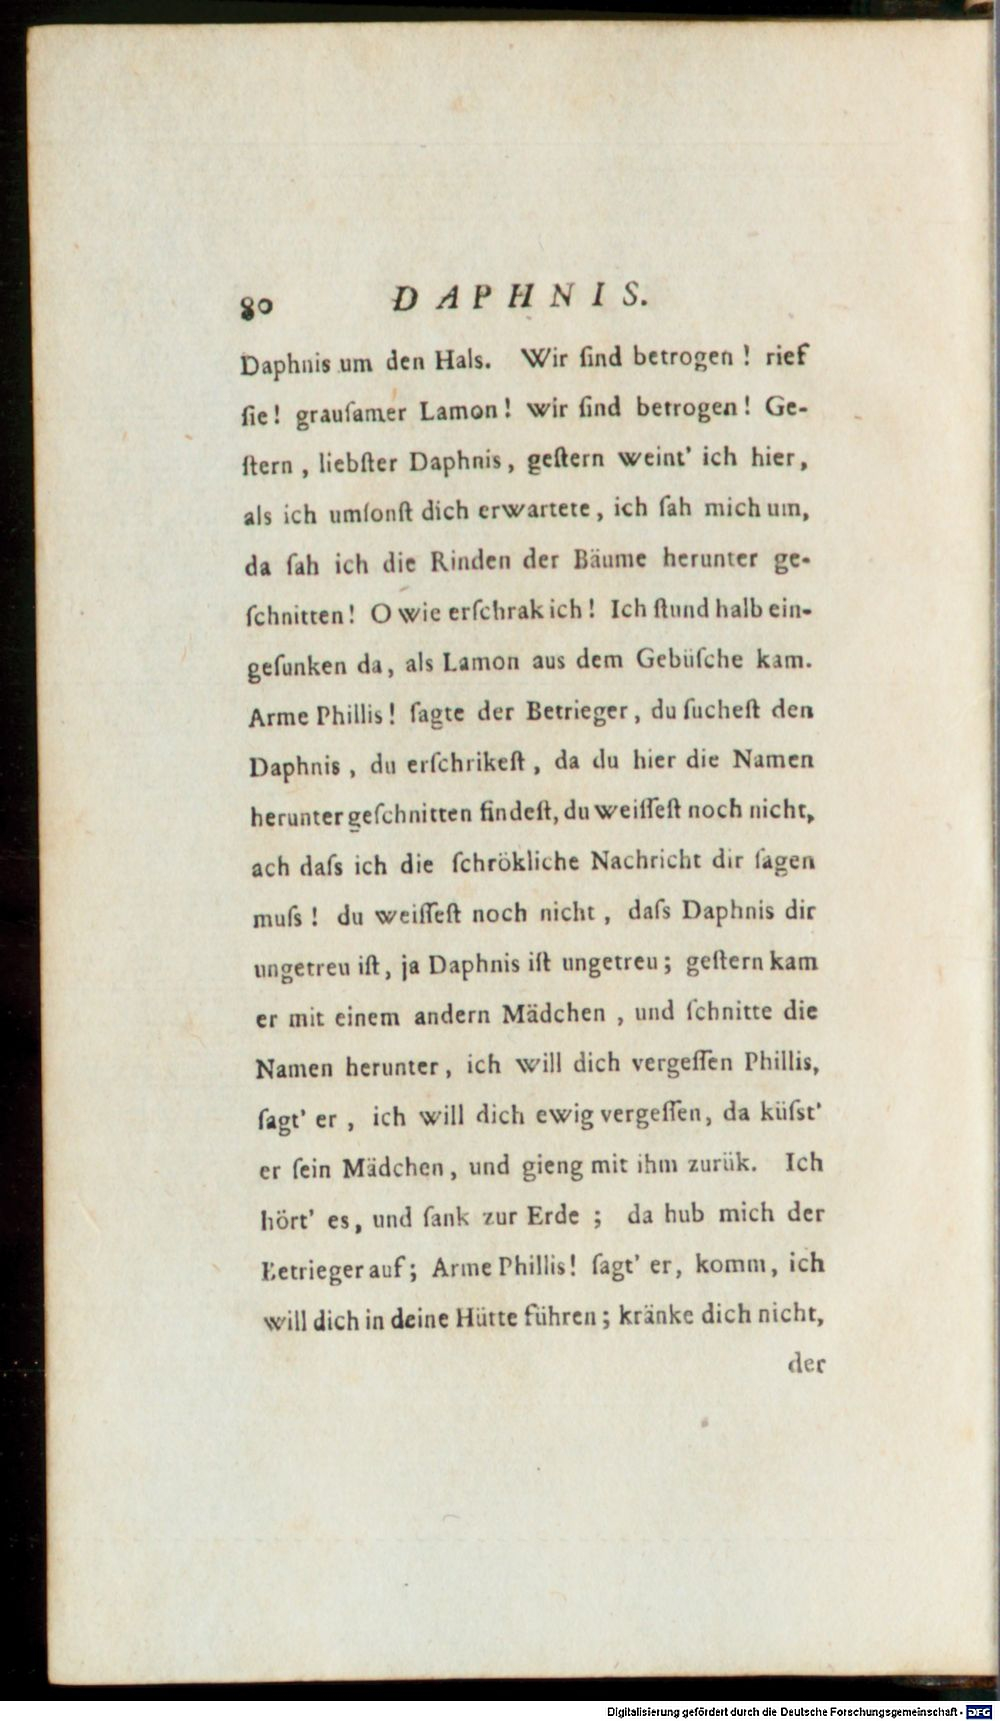 80 DAPHNIS.
Daphnis um den Hals. Wir ſind betrogen ! rief
ſie! grauſamer Lamon! wir ſind betrogen! Ge-
ſtern , liebſter Daphnis, geſtern weint' ich hier,
als ich umſonſt dich erwartete, ich ſah mich um,
da ſah ich die Rinden der Bäume herunter ge-
ſchnitten! O wie erſchrak ich! Ich ſtund halb ein-
geſunken da, als Lamon aus dem Gebüſche kam.
Arme Phillis! ſagte der Betrieger, du ſucheſt den
Daphnis, du erſchrikeſt, da du hier die Namen
herunter geſchnitten findeſt, du weiſſeſt noch nicht,
ach daſs ich die ſchrökliche Nachricht dir ſagen
muſs! du weiſſeſt noch nicht, daſs Daphnis dir
ungetreu iſt, ja Daphnis iſt ungetreu; geſtern kam
er mit einem andern Mädchen , und ſchnitte die
Namen herunter, ich will dich vergeſſen Phillis,
ſagt' er , ich will dich ewig vergeſſen, da küſst'
er ſein Mädchen, und gieng mit ihm zurük. Ich
hört' es, und ſank zur Erde ; da hub mich der
Betrieger auf; Arme Phillis! ſagt' er, komm, ich
will dich in deine Hütte führen; kränke dich nicht,
der
Digitalisierung gefördert durch die Deutsche Forschungsgemeinschaft - DFG